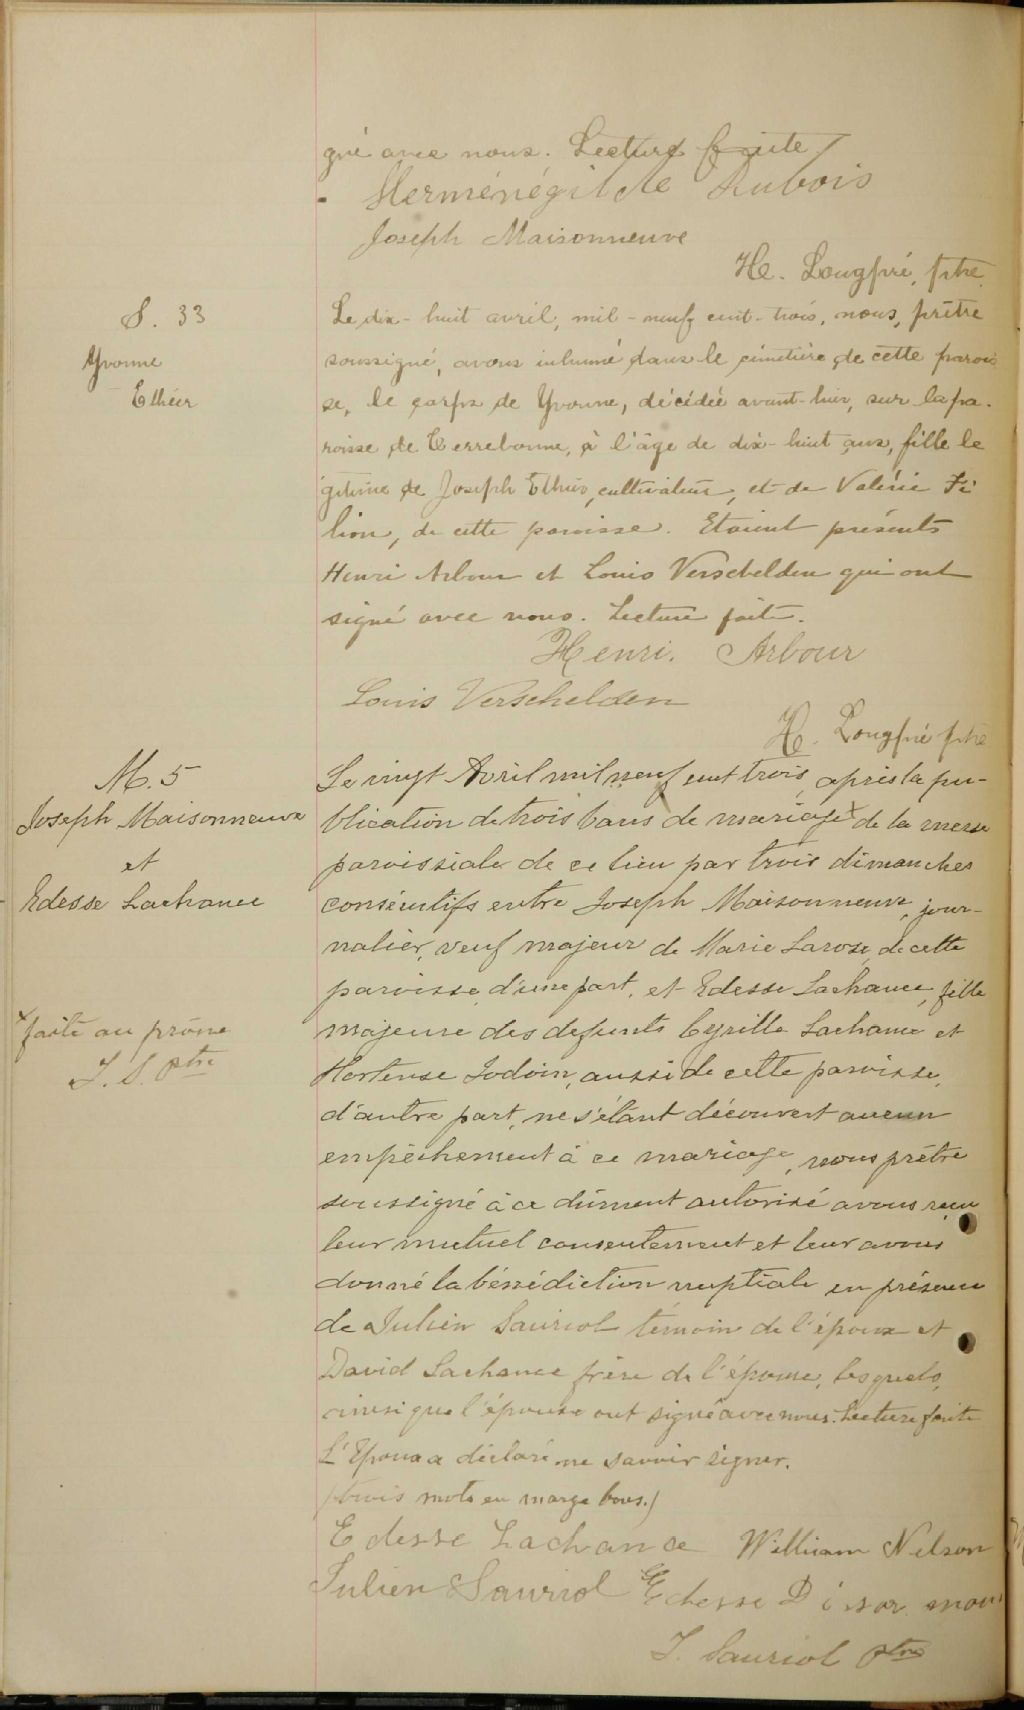 gné avec nous. Lecture faite.
Herménégilde Dubois
Joseph Maisonneuve
H. Longpré, ptre.
S. 33
Yvonne
Ethier
Le dix-huit avril, mil-neuf cent-trois, nous, prêtre
soussigné, avons inhumé dans le cimetière de cette parois
se, le corps de Yvonne, décédée avant-hier, sur la pa-
roisse de Terrebonne, à l'âge de dix-huit ans, fille lé
gitime de Joseph Ethier, cultivateur, et de Valérie Fi
lion, de cette paroisse. Etaient présents
Henri Arbour et Louis Verschelden qui ont
signé avec nous. Lecture faite.
Henri. Arbour
Louis Verschelden
H. Longpré ptre
M. 5
Joseph Maisonneuve
et
Edesse Lachance
x faite au prône
J. S. ptre
Le vingt Avril mil neuf cent trois, après la pu-
blication de trois bans de mariage x de la messe
paroissiale de ce lieu par trois dimanches
consécutifs entre Joseph Maisonneuve, jour-
nalier, veuf majeur de Marie Larose, de cette
paroisse, d'une part, et Edesse Lachance, fille
majeure des defunts Cyrille Lachance et
Hortense Jodoin, aussi de cette paroisse,
d'autre part, ne s'étant découvert aucun
empêchement à ce mariage, nous prêtre
soussigné à ce dûment autorisé avons reçu
leur mutuel consentement et leur avons
donné la bénédiction nuptiale en présence
de Julien Sauriol témoin de l'époux et
David Lachance frère de l'épouse, lesquels,
ainsi que l'épouse ont signé avec nous. Lecture faite
L'Epoux a déclaré ne savoir signer.
(trois mots en marge bons.)
Edesse Lachance William Nelson
Julien Sauriol Edesse
J. Sauriol ptre